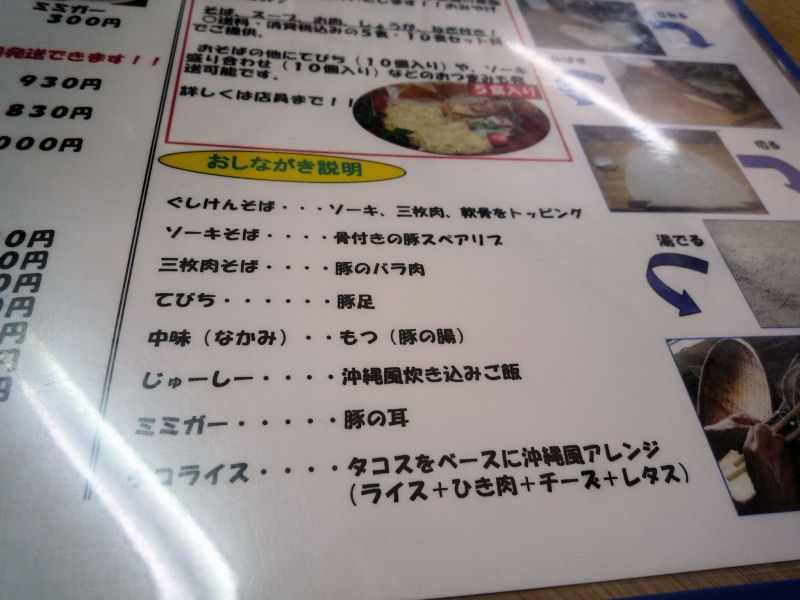 ミミガー
300円
発送できます！！
930円
830円
000円
0円
0円
0円
0円
円
円
円
そば、スープ、お肉、しょうが、ねぎ付き！
○送料・消費税込みの5食・10食セット
でご提供。
おそばの他にてびち（10個入り）や、ソーキ
盛り合わせ（10個入り）などのおつまみも発
送可能です。
詳しくは店員まで！！
5食入り
おしながき説明
ぐしけんそば・・・ソーキ、三枚肉、軟骨をトッピング
ソーキそば・・・・骨付きの豚スペアリブ
三枚肉そば・・・・豚のバラ肉
てびち・・・・・・豚足
中味（なかみ）・・もつ（豚の腸）
じゅーしー・・・・沖縄風炊き込みご飯
ミミガー・・・・・豚の耳
タコライス・・・・タコスをベースに沖縄風アレンジ
（ライス＋ひき肉＋チーズ＋レタス）
こねる
のばす
切る
湯でる